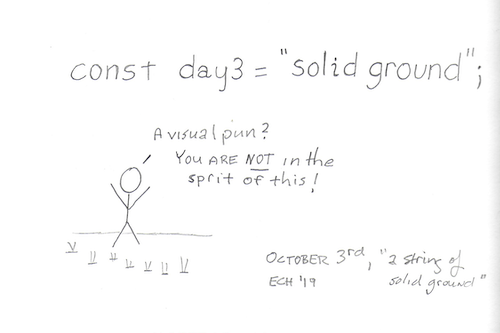 const day3 = "solid ground";
A visual pun?
YOU ARE NOT in the
sprit of this!
OCTOBER 3rd, "a string of
ECH '19 solid ground"